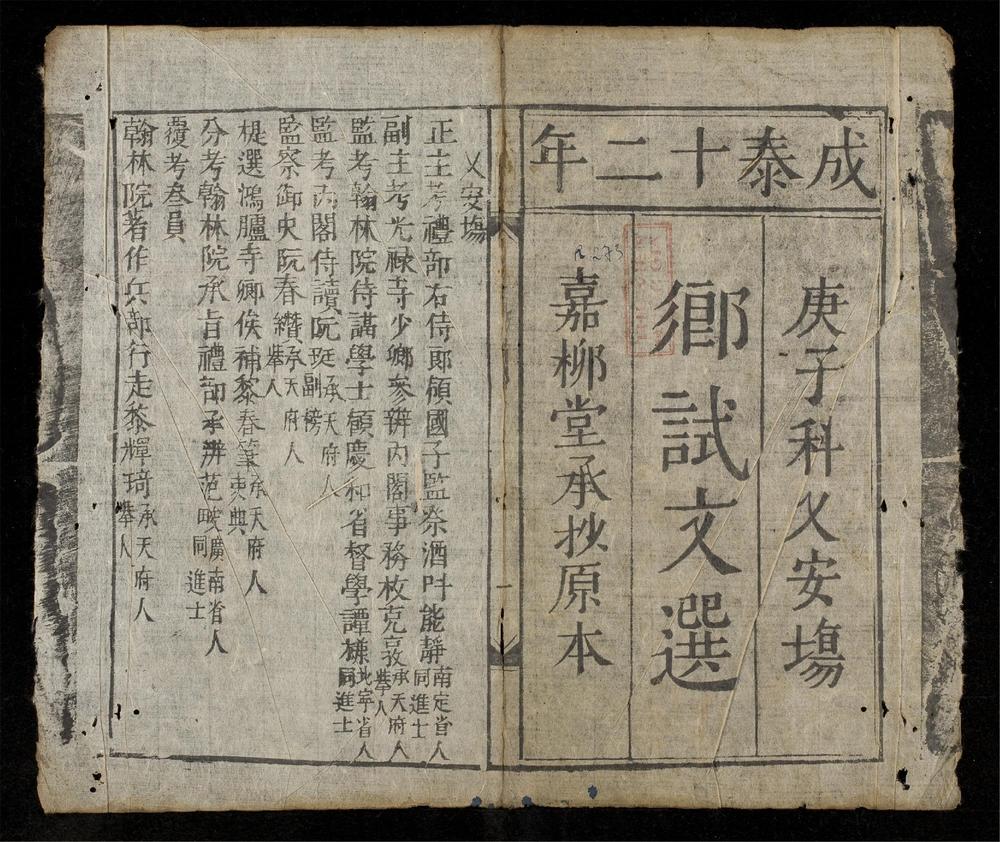 成泰十二年
庚子科乂安場
鄉試文選
嘉柳堂承抄原本
乂安塲
正主考禮部右侍郎領國子監祭酒叶能靜南定省人同進士
副主考光禄寺少卿參辦內閣事務枚克敦承天府人舉人
監考翰林院侍講學士領慶和省督學譚棟北寧省人同進士
監考內閣侍讀阮珽承天府人副榜
監察御史阮春纘承天府人舉人
提選鴻臚寺卿侯補黎春肇承天府人吏典
分考翰林院承旨禮部承辨范畯廣南省人同進士
覆考叁員
翰林院著作兵部行走黎輝琦承天府人舉人